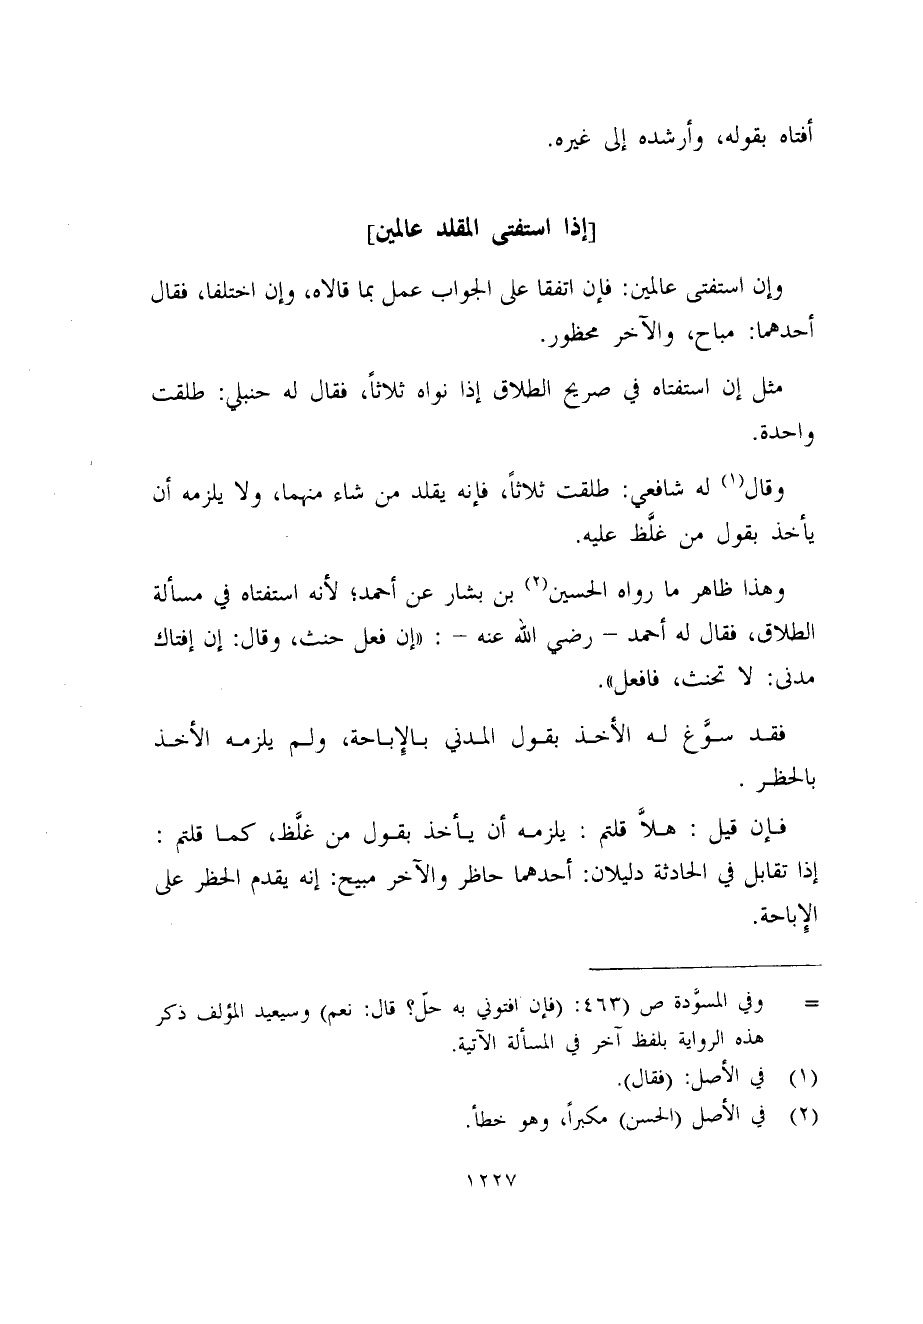 أفتاه بقوله، وأرشده إلى غيره.
[إذا استفتى المقلد عالمين]
وإن استفتى عالمين: فإن اتفقا على الجواب عمل بما قالاه، وإن اختلفا، فقال
أحدهما: مباح، والآخر محظور.
مثل إن استفتاه في صريح الطلاق إذا نواه ثلاثاً، فقال له حنبلي: طلقت
واحدة.
وقال(١) له شافعي: طلقت ثلاثاً، فإنه يقلد من شاء منهما، ولا يلزمه أن
يأخذ بقول من غلَّظ عليه.
وهذا ظاهر ما رواه الحسين(٢) بن بشار عن أحمد؛ لأنه استفتاه في مسألة
الطلاق، فقال له أحمد – رضي الله عنه – : «إن فعل حنث، وقال: إن إفتاك
مدنى: لا تحنث، فافعل».
فقد سوَّغ له الأخذ بقول المدني بالإباحة، ولم يلزمه الأخذ
بالحظر .
فإن قيل : هلاَّ قلتم : يلزمه أن يأخذ بقول من غلَّظ، كما قلتم :
إذا تقابل في الحادثة دليلان: أحدهما حاظر والآخر مبيح: إنه يقدم الحظر على
الإباحة.
= وفي المسوَّدة ص (٤٦٣: (فإن افتوني به حلّ؟ قال: نعم) وسيعيد المؤلف ذكر
هذه الرواية بلفظ آخر في المسألة الآتية.
(١) في الأصل: (فقال).
(٢) في الأصل (الحسن) مكبراً، وهو خطأ.
١٢٢٧